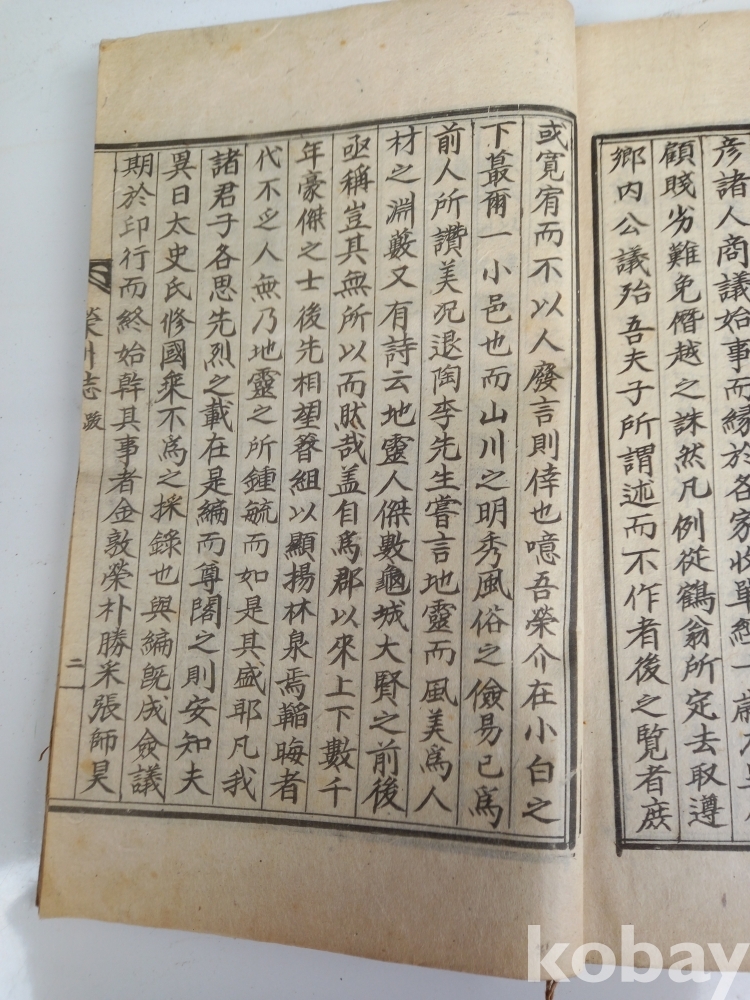 彦諸人商議始事而縁於各家收單經一歲
顧賤劣難免僭越之誅然凡例從鶴翁所定去取遵
鄉內公議殆吾夫子所謂述而不作者後之覧者庶
或寛宥而不以人廢言則倖也噫吾榮介在小白之
下蕞爾一小邑也而山川之明秀風俗之儉易已爲
前人所讚美况退陶李先生嘗言地靈而風美爲人
材之淵藪又有詩云地靈人傑數龜城大賢之前後
亟稱豈其無所以而肰哉盖自爲郡以來上下數千
年豪傑之士後先相望簪組以顯揚林泉焉韜晦者
代不乏人無乃地靈之所鍾毓而如是其盛耶凡我
諸君子各思先烈之載在是編而尊閣之則安知夫
異日太史氏修國乘不爲之採錄也與編旣成僉議
期於印行而終始幹其事者金敦榮朴勝采張師昊
榮州志 跋 二
kobay